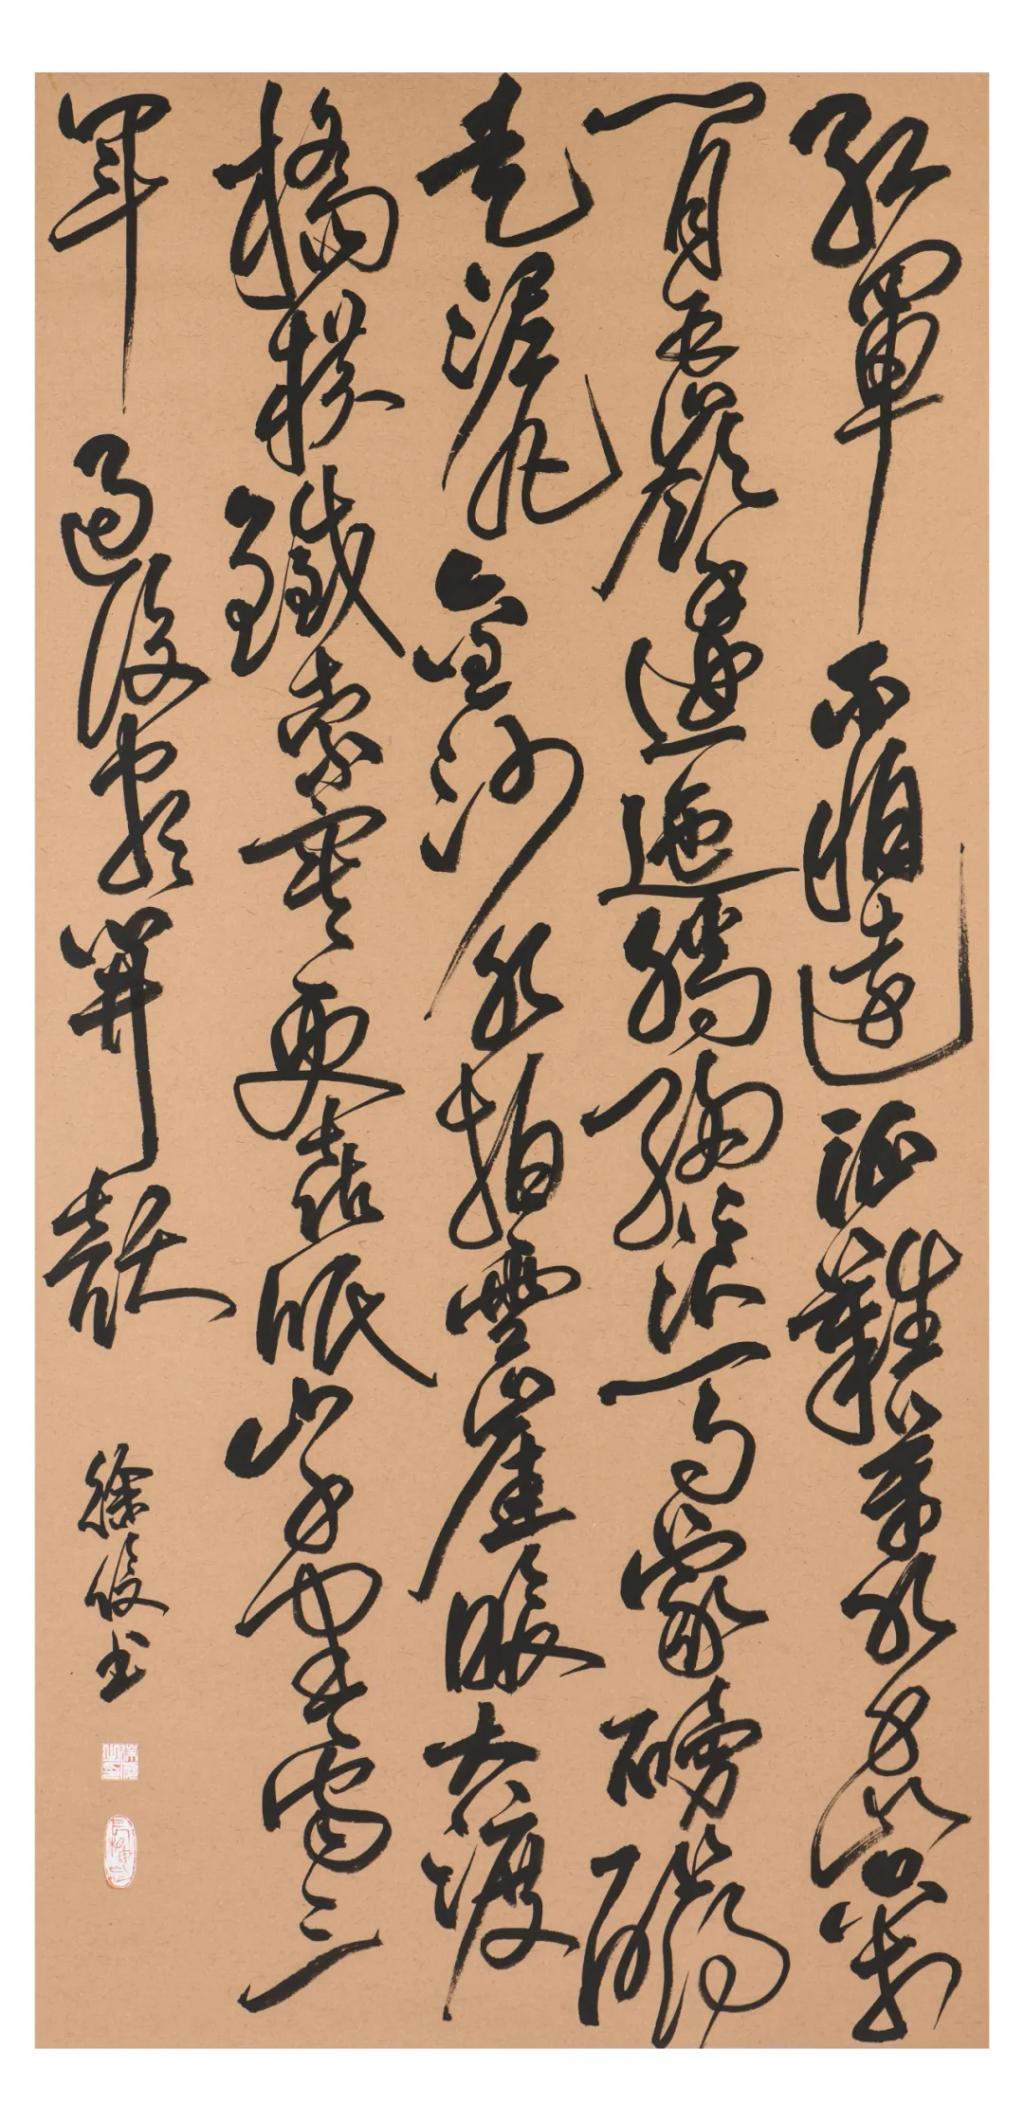 紅軍不怕遠征難萬水千山只等
閒五嶺逶迤騰細浪烏蒙磅礴
走泥丸金沙水拍雲崖暖大渡
橋橫鐵索寒更喜岷山千里雪三
軍過後盡開顏
徐俊书